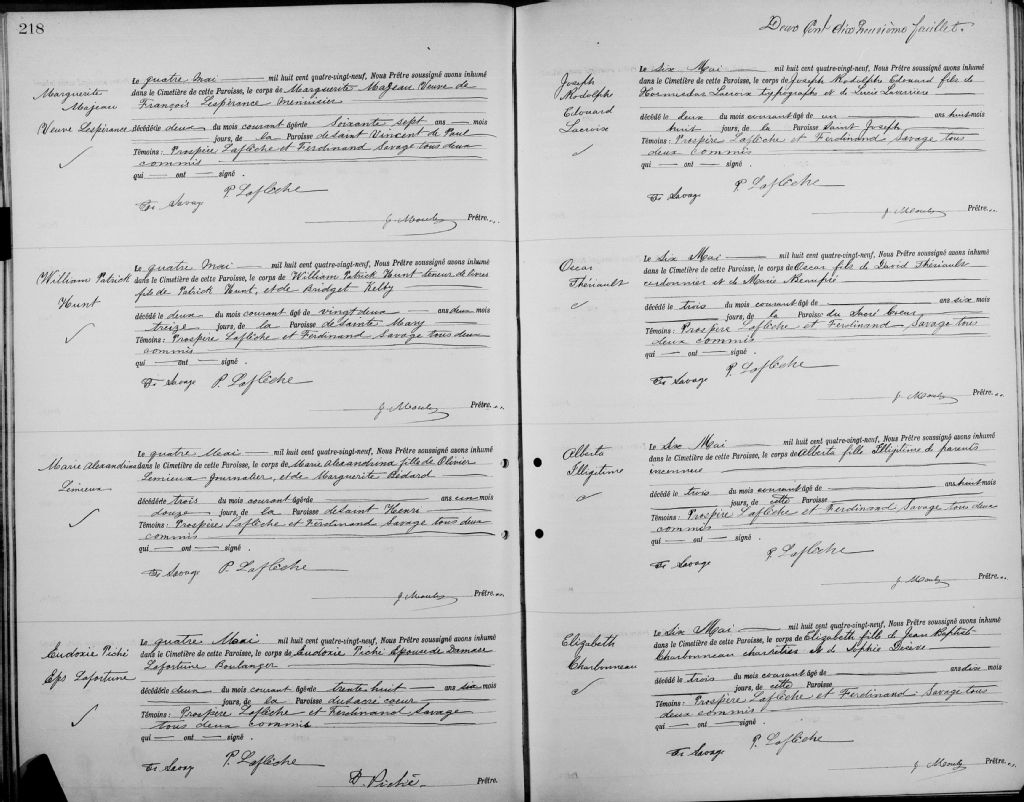 218
Marguerite
Majeau
Veuve Lespérance
Le quatre Mai mil huit cent quatre-vingt-neuf, Nous Prêtre soussigné avons inhumé
dans le Cimetière de cette Paroisse, le corps de Marguerite Majeau Veuve de
François Lespérance Menuisier
décédée le deux du mois courant âgée de Soixante sept ans mois
jours, de la Paroisse de Saint Vincent de Paul
Témoins : Prospère Laflèche et Ferdinand Savage tous deux
commis
qui — ont — signé .
Fr Savage P. Laflèche
Prêtre.
William Patrick
Hunt
Le quatre Mai mil huit cent quatre-vingt-neuf, Nous Prêtre soussigné avons inhumé
dans le Cimetière de cette Paroisse, le corps de William Patrick Hunt teneur de livres
fils de Patrick Hunt, et de Bridget Kelly
décédé le deux du mois courant âgé de vingt deux ans deux mois
treize jours, de la Paroisse de Sainte Mary
Témoins : Prospère Laflèche et Ferdinand Savage tous deux
commis
qui — ont — signé .
Fr Savage P. Laflèche
Prêtre.
Marie Alexandrina
Lemieux
Le quatre Mai mil huit cent quatre-vingt-neuf, Nous Prêtre soussigné avons inhumé
dans le Cimetière de cette Paroisse, le corps de Marie Alexandrina fille de Olivier
Lemieux Journalier, et de Marguerite Bédard
décédée le trois du mois courant âgée de ans cinq mois
douze jours, de la Paroisse de Saint Henri
Témoins : Prospère Laflèche et Ferdinand Savage tous deux
commis
qui — ont — signé .
Fr Savage P. Laflèche
Prêtre.
Eudoxie Piché
Eps Lafortune
Le quatre Mai mil huit cent quatre-vingt-neuf, Nous Prêtre soussigné avons inhumé
dans le Cimetière de cette Paroisse, le corps de Eudoxie Piché Epouse de Damase
Lafortune Boulanger
décédée le deux du mois courant âgée de trente huit ans six mois
jours, de la Paroisse du Sacré coeur
Témoins : Prospère Laflèche et Ferdinand Savage
tous deux commis
qui — ont — signé .
Fr Savage P. Laflèche
D. Piché. Prêtre.
Deux Cent dix neuvième feuillet.
Joseph
Rodolphe
Edouard
Lacroix
Le Six Mai mil huit cent quatre-vingt-neuf, Nous Prêtre soussigné avons inhumé
dans le Cimetière de cette Paroisse, le corps de Joseph Rodolphe Edouard fils de
Hormisdas Lacroix typographe et de Lucie Laurière
décédé le deux du mois courant âgé de un ans huit mois
huit jours, de la Paroisse Saint Joseph
Témoins : Prospère Laflèche et Ferdinand Savage tous
deux commis
qui — ont — signé .
Fr Savage P. Laflèche
Prêtre.
Oscar
Thériault
Le Six Mai mil huit cent quatre-vingt-neuf, Nous Prêtre soussigné avons inhumé
dans le Cimetière de cette Paroisse, le corps de Oscar fils de David Thériault
cordonnier et de Marie Beaupré
décédé le trois du mois courant âgé de ans six mois
jours, de la Paroisse du Sacré Coeur
Témoins : Prospère Laflèche et Ferdinand Savage tous
deux commis
qui — ont — signé .
Fr Savage P. Laflèche
Prêtre.
Alberta
Illégitime
Le Six Mai mil huit cent quatre-vingt-neuf, Nous Prêtre soussigné avons inhumé
dans le Cimetière de cette Paroisse, le corps de Alberta fille Illégitime de parents
inconnus
décédée le trois du mois courant âgé de ans huit mois
jours, de cette Paroisse
Témoins : Prospère Laflèche et Ferdinand Savage tous deux
commis
qui — ont — signé .
Fr Savage P. Laflèche
Prêtre.
Elizabeth
Charbonneau
Le Six Mai mil huit cent quatre-vingt-neuf, Nous Prêtre soussigné avons inhumé
dans le Cimetière de cette Paroisse, le corps de Elizabeth fille de Jean Baptiste
Charbonneau charretier et de Sophie
décédé le trois du mois courant âgé de ans dix mois
jours, de cette Paroisse
Témoins : Prospère Laflèche et Ferdinand Savage tous
deux commis
qui — ont — signé .
Fr Savage P. Laflèche
Prêtre.